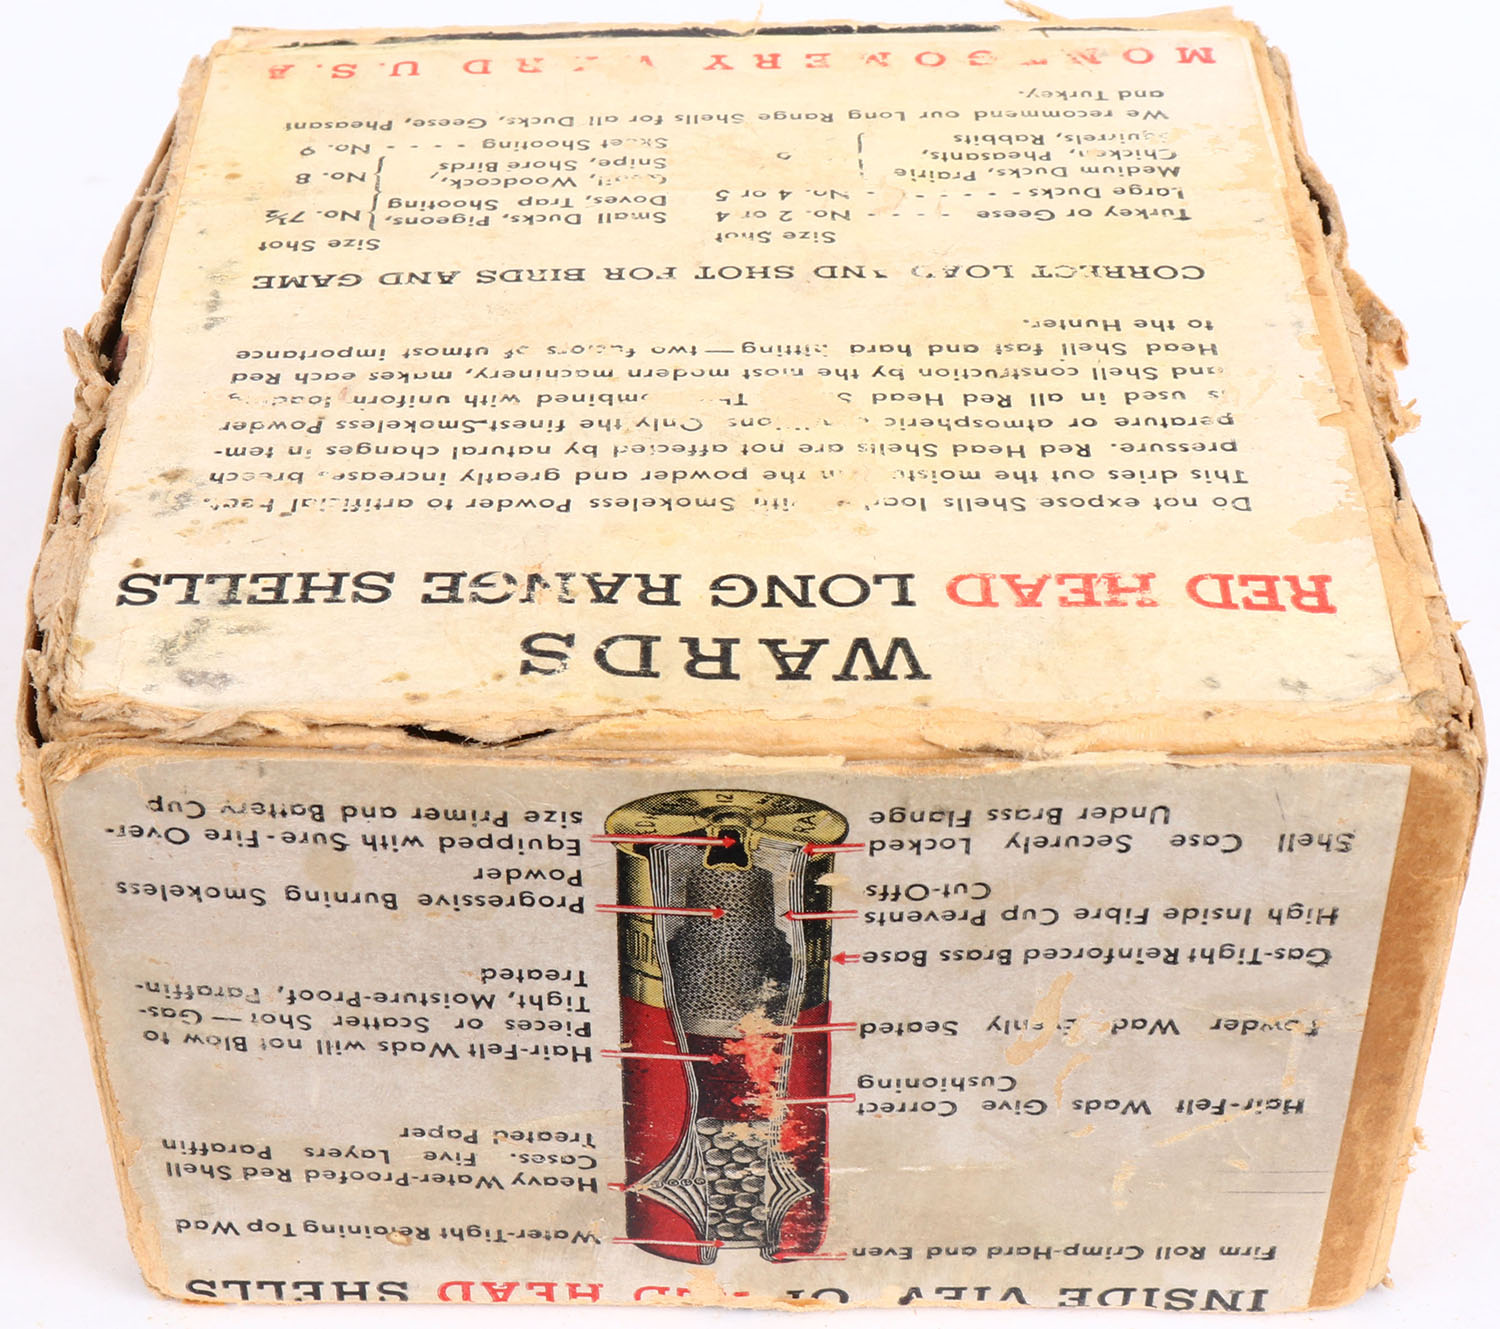 WARDS
RED HEAD LONG RANGE SHELLS
Do not expose Shells with Smokeless Powder to artificial
This dries out the the powder and greatly increases breech
pressure. Red Head Shells are not affected by natural changes in tem-
perature or atmospheric Only the finest Smokeless Powder
is used in all Red Head combined with uniform loading
and Shell construction by the most modern machinery, makes each Red
Head Shell fast and hard hitting — two factors of utmost importance
to the Hunter.
CORRECT LOAD AND SHOT FOR BIRDS AND GAME
Size Shot
Turkey or Geese - - - - No. 2 or 4
Large Ducks - - - - - No. 4 or 5
Medium Ducks, Prairie
Chicken, Pheasants,
Squirrels, Rabbits
Size Shot
Small Ducks, Pigeons,
Doves, Trap Shooting } No. 7½
Quail, Woodcock,
Snipe, Shore Birds } No. 8
Skeet Shooting - - - - No. 9
We recommend our Long Range Shells for all Ducks, Geese, Pheasant
and Turkey.
MONTGOMERY WARD U.S.A
INSIDE VIEW OF RED HEAD SHELLS
Firm Roll Crimp-Hard and Even
Hair-Felt Wads Give Correct
Cushioning
Powder Wad Evenly Seated
Gas-Tight Reinforced Brass Base
High Inside Fibre Cup Prevents
Cut-Offs
Shell Case Securely Locked
Under Brass Flange
Water-Tight Retaining Top Wad
Heavy Water-Proofed Red Shell
Cases. Five Layers Paraffin
Treated Paper
Hair-Felt Wads will not Blow to
Pieces or Scatter Shot — Gas-
Tight, Moisture-Proof, Paraffin-
Treated
Progressive Burning Smokeless
Powder
Equipped with Sure-Fire Over-
size Primer and Battery Cup
12